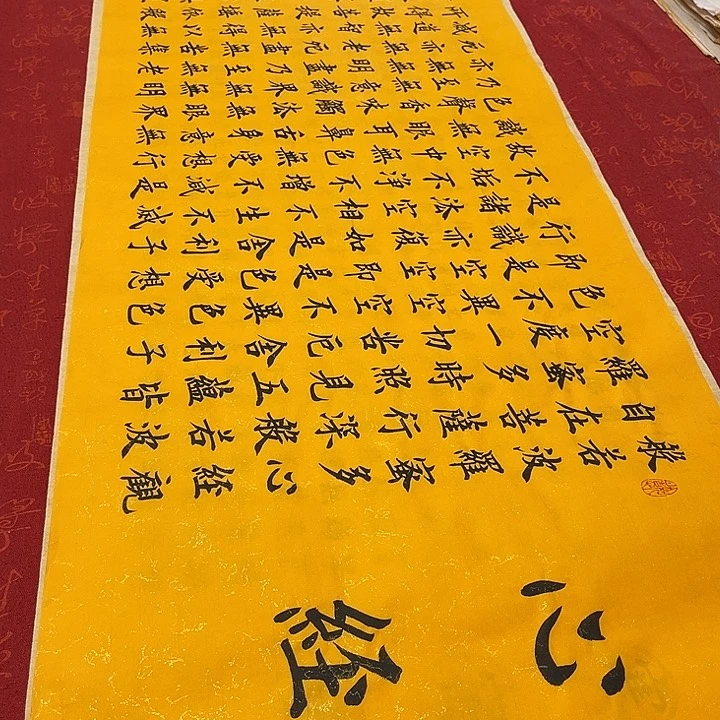 心経
般若波羅蜜多心經觀
自在菩薩行深般若波
羅蜜多時照見五蘊皆
空度一切苦厄舍利子
色不異空空不異色色
即是空空即是色受想
行識亦復如是舍利子
是諸法空相不生不滅
不垢不淨不增不減是
故空中無色無受想行
識無眼耳鼻舌身意無
色聲香味觸法無眼界
乃至無意識界無無明
亦無無明盡乃至無老
死亦無老死盡無苦集
滅道無智亦無得以無
所得故菩提薩埵依般